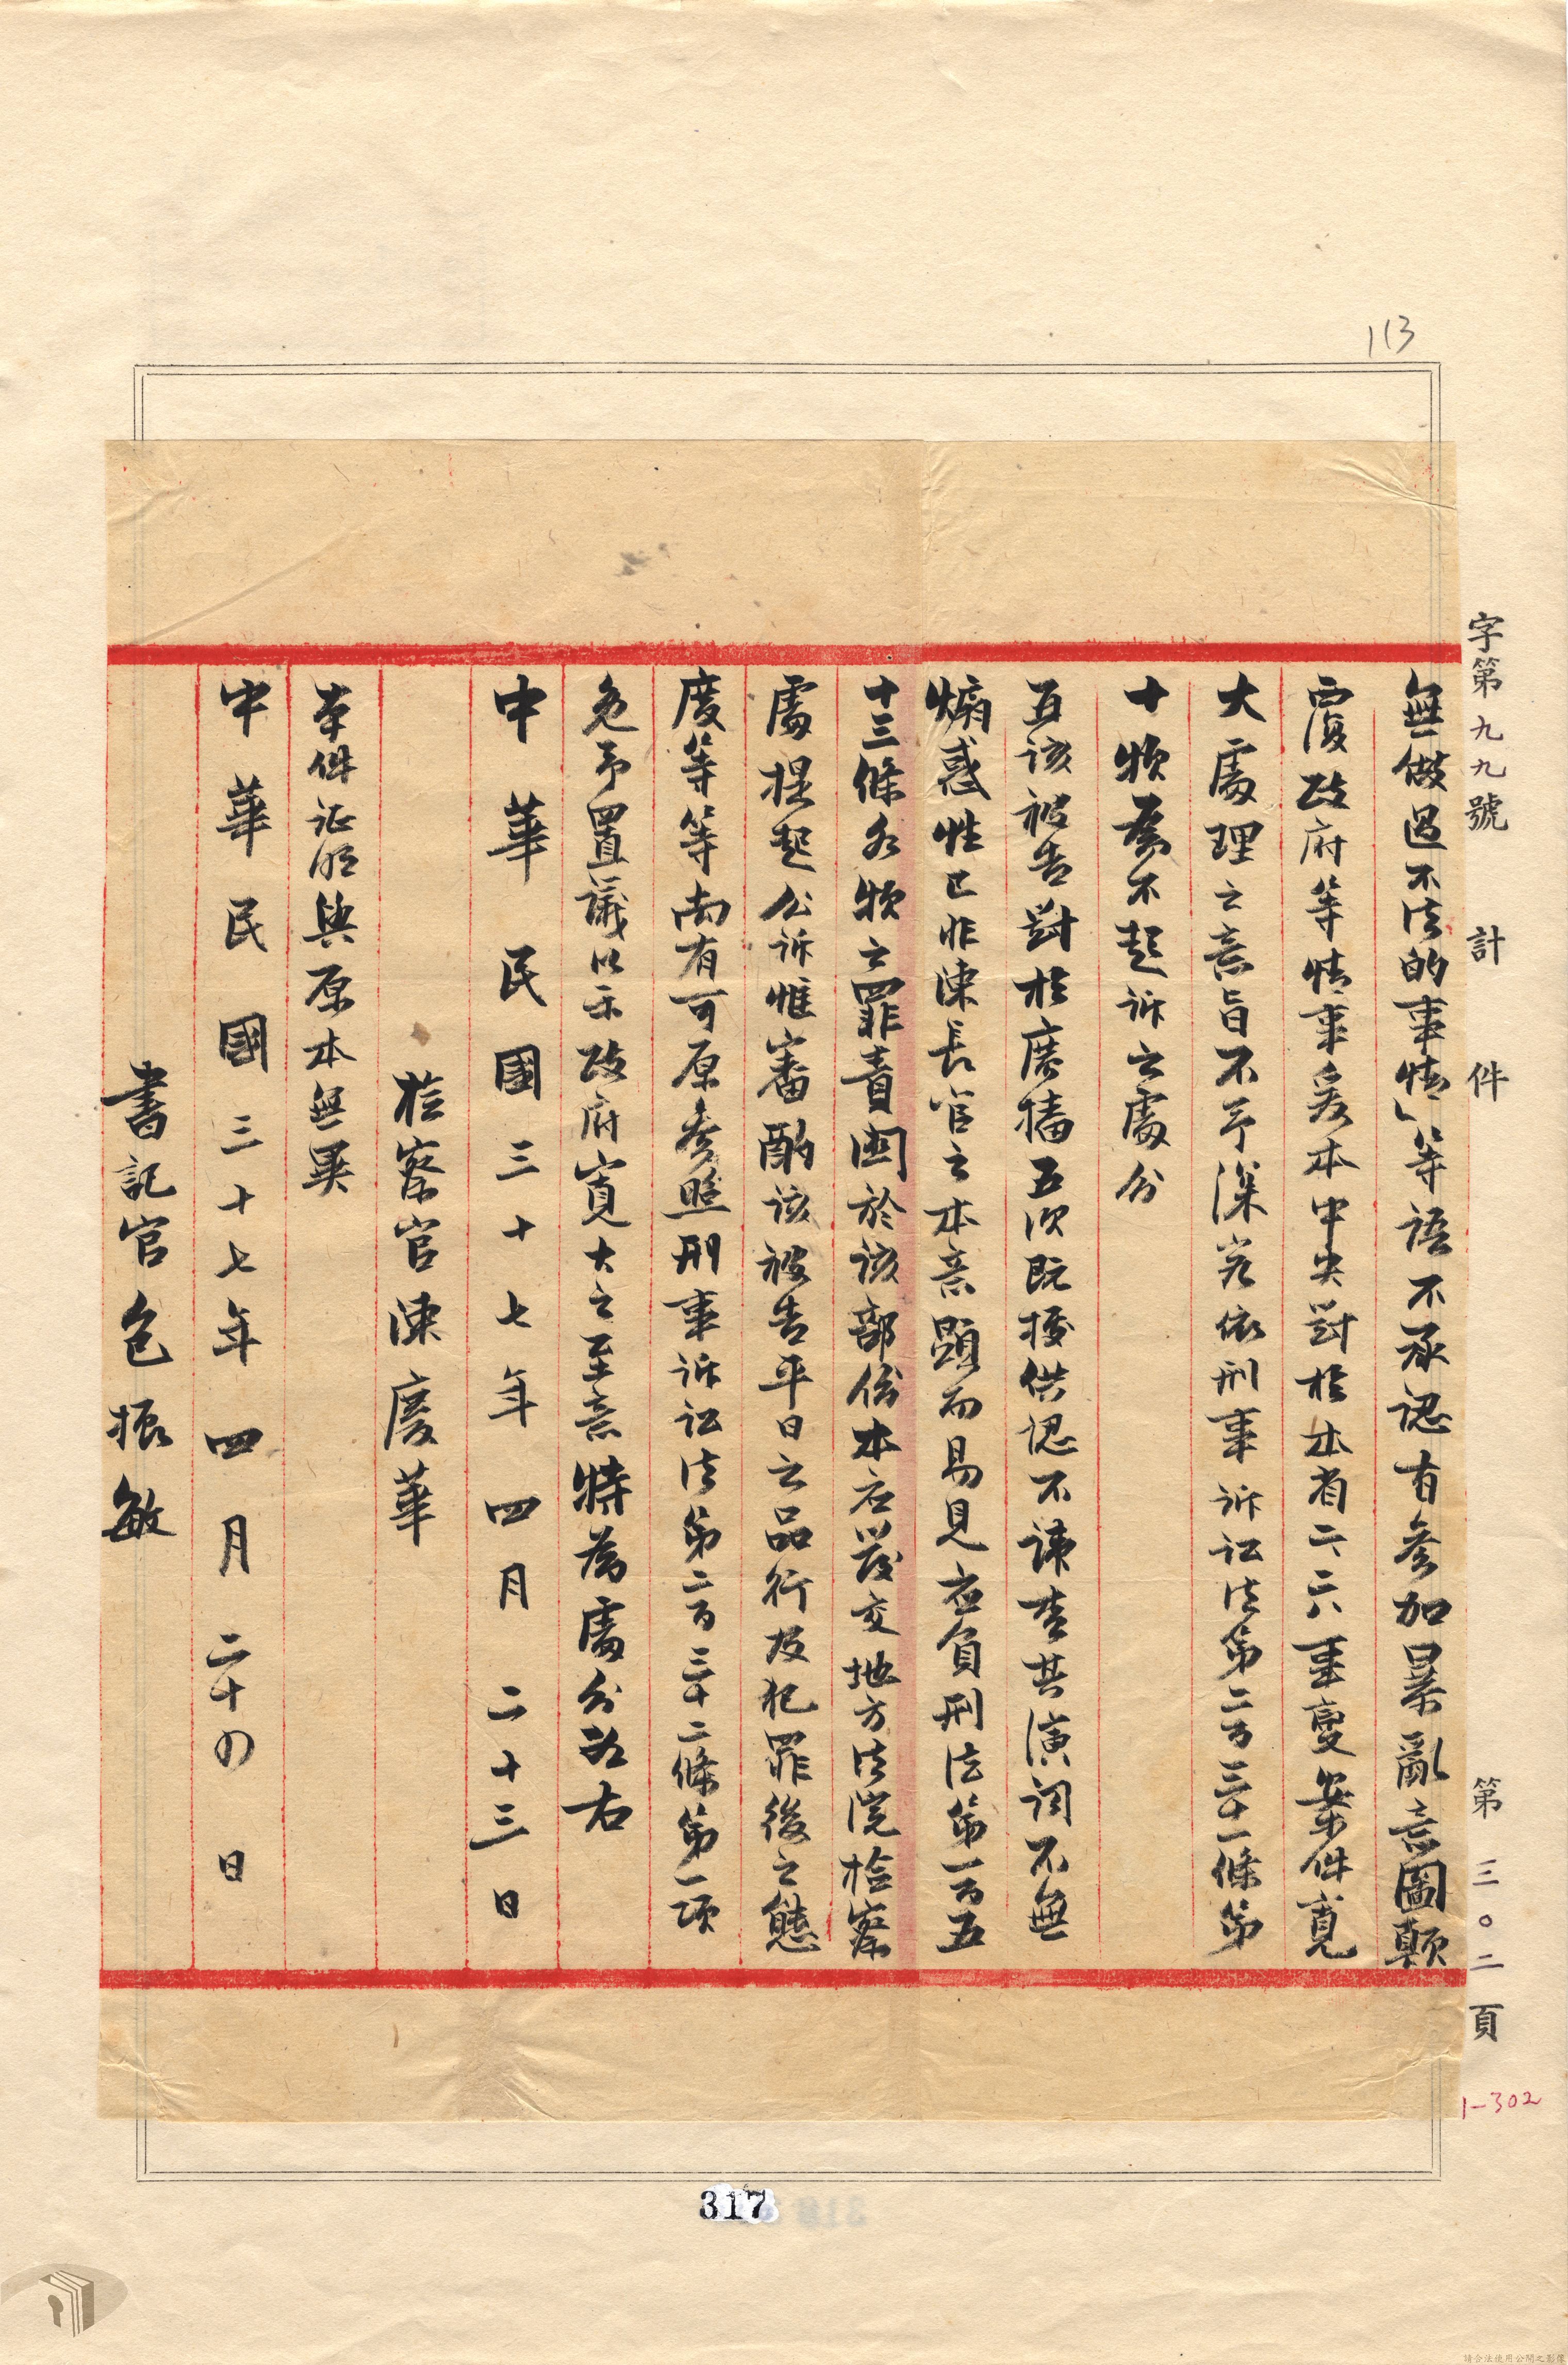 113
字第九九號 計 件 第三〇二頁
1-302
無做過不法的事情」等語不承認有參加暴亂意圖顛
覆政府等情事爰本中央對於本省二、二八事變案件寬
大處理之意旨不予深究依刑事訴訟法第二百三十一條第
十款為不起訴之處分
至該被告對於廣播五次既據供認不諱查其演詞不無
煽惑性已非陳長官之本意顯而易見应負刑法第一百五
十三條各款之罪責関於該部份本应發交地方法院檢察
處提起公訴惟審酌該被告平日之品行及犯罪後之態
度等等尚有可原參照刑事訴訟法第二百三十二條第一項
免予置議以示政府寬大之至意特為處分如右
中華民國三十七年四月二十三日
檢察官陳慶華
本件証明與原本無異
中華民國三十七年四月二十四日
書記官包振敏
317
請合法使用公開之影像